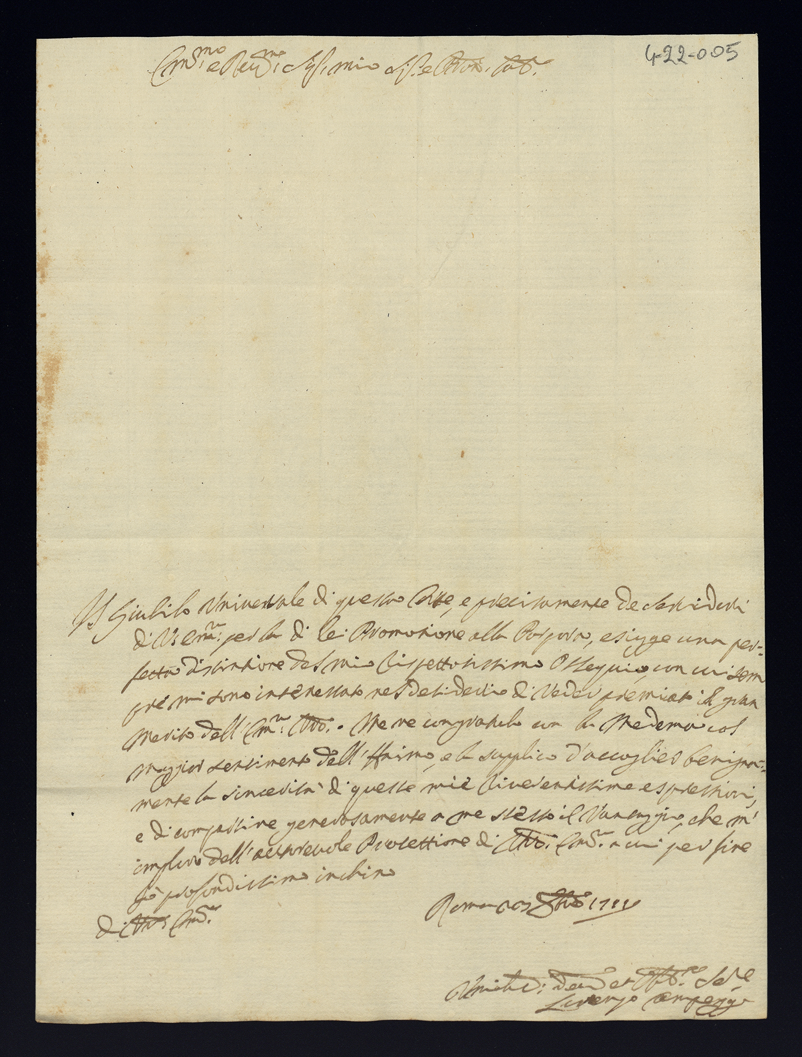 422-005
Em.mo e Rev.mo Sig. mio Sig.e
Il Giubilo Universale di questa Corte, e precisamente de Servidori
di V: Em.a per la di lei Promotione alla Porpora, esigge una per=
fetta distintione del mio Rispettosissimo Ossequio, con cui sem
pre mi sono interessato nel desiderio di veder premiato il gran
Merito dell' Em.a Vra. Me ne congratulo con la Medema col
maggior sentimento dell'Animo, e la supplico d'accoglier benigna=
mente la sincerità di queste mie Riverentissime espressioni,
e di compartire generosamente a me stesso il Vantaggio, che m'
imploro dell' autorevole Protettione di Vra. Em.a a cui per fine
fò profondissimo inchino
di Vra Em.a
Roma
Lorenzo Campeggi